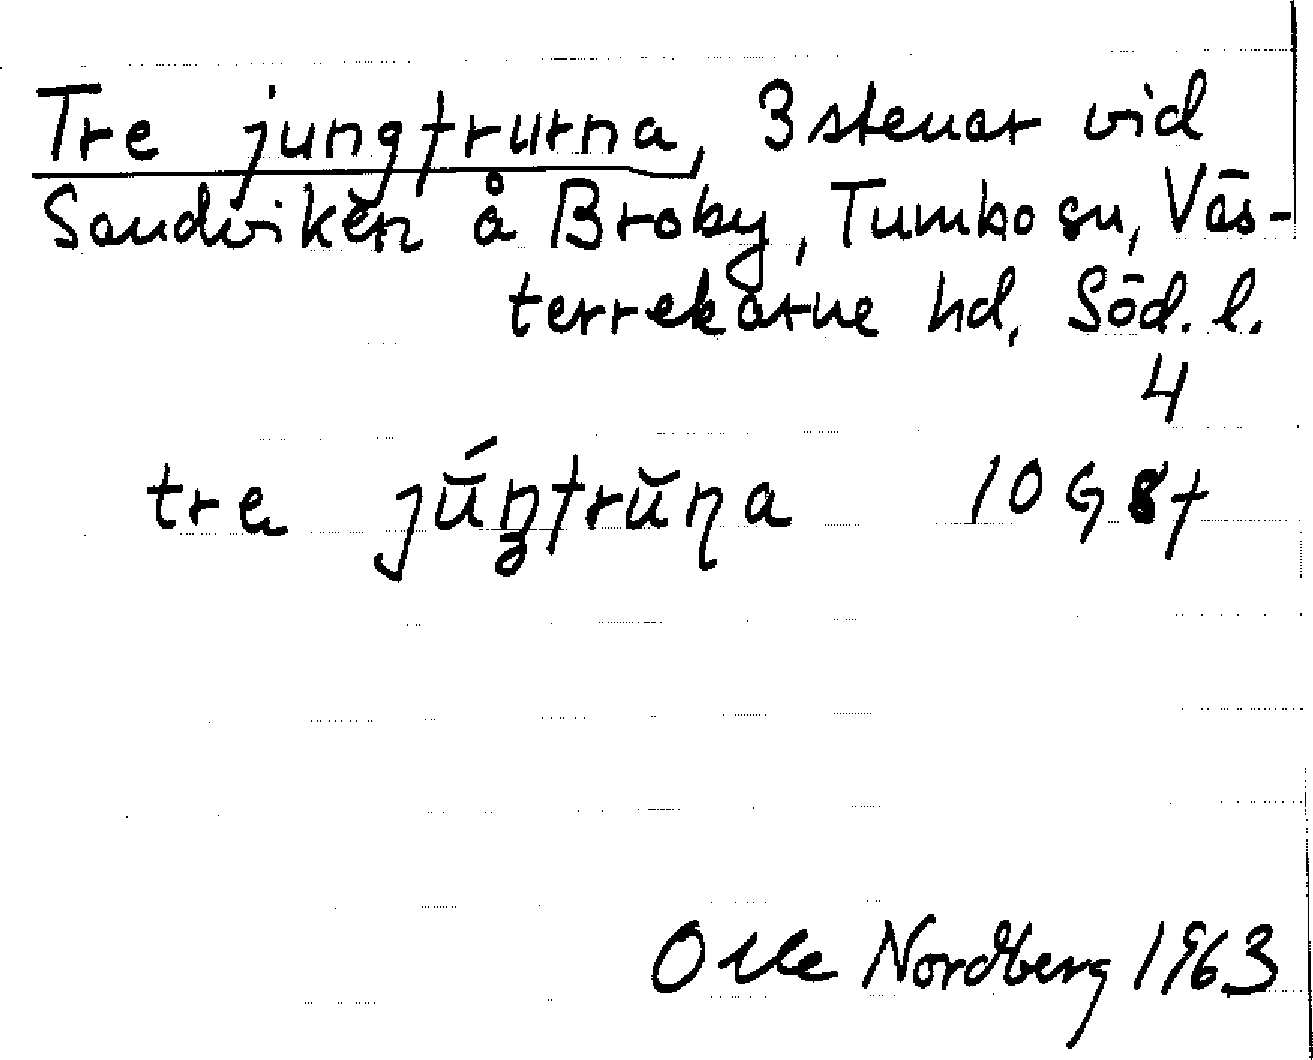 Tre jungfrurna, 3 stenar vid
Sandviken å Broby, Tumbo sn, Väs-
terrekarne hd, Söd. l.
4
tre
10 G 8f
Olle Nordberg 1963